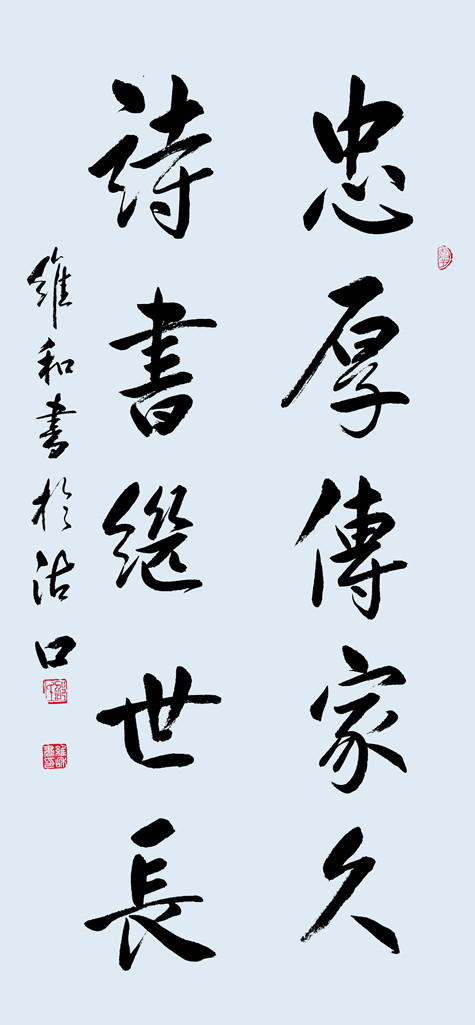 忠厚傳家久
詩書繼世長
維和書於沽口